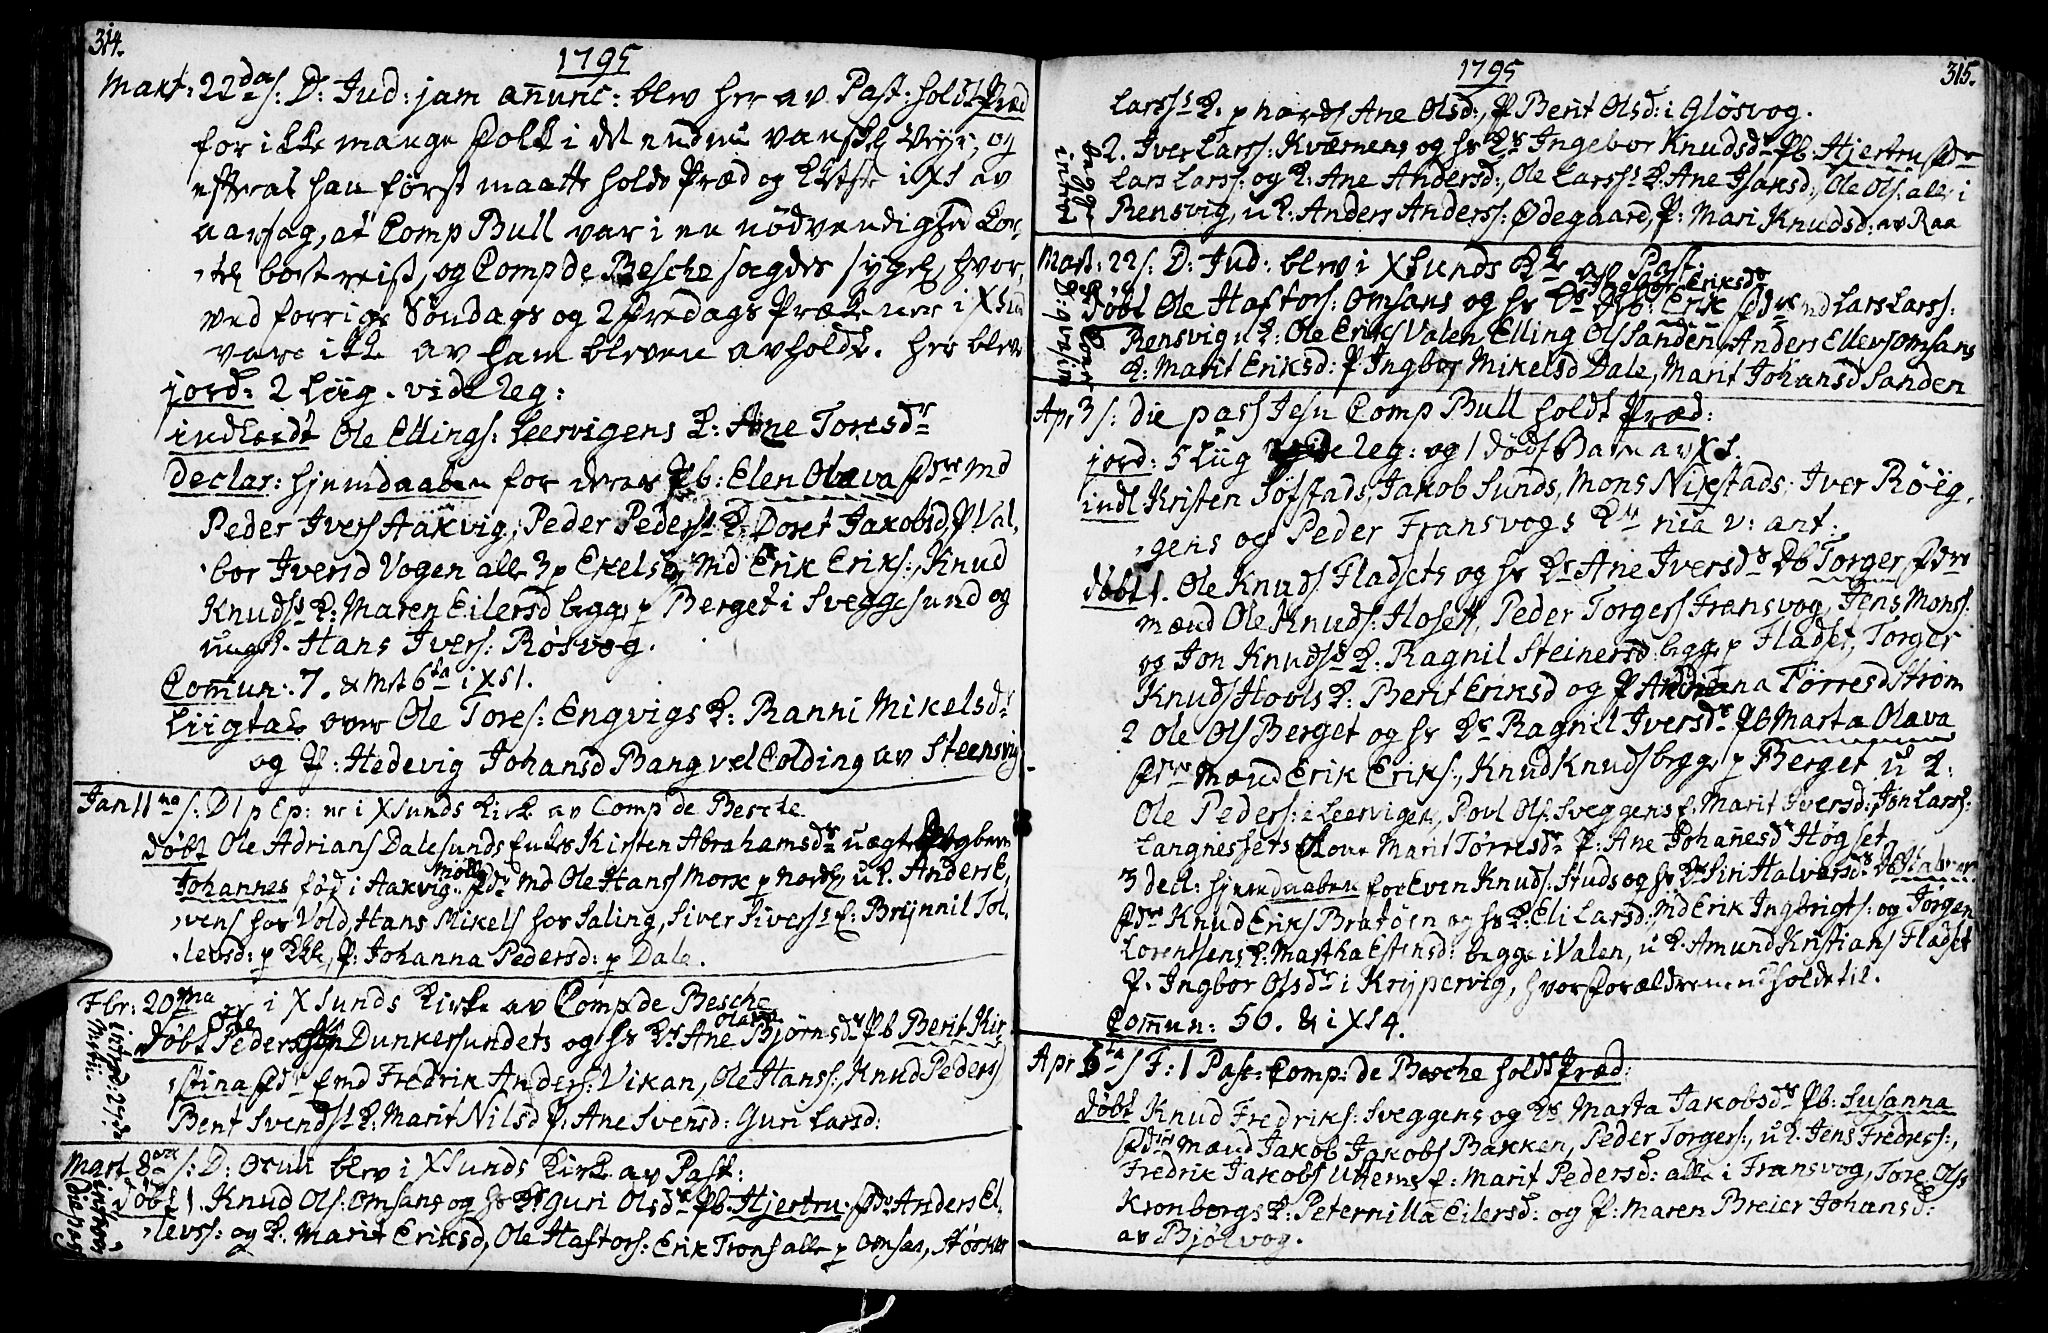 314.
1795
Mart: 22da s: D: Jud: jam anunc: blev her av Past: holdt Præd
for ikke mange Folk i det endnu vanskel Veyr, og
efterat han først maatte holde Præd og i XS av
aarsag, at Comp Bull var i en nödvendighed
bort reist, og Comp de Besche sagdes sygel, hvor,
ved forrige Söndags og 2 Fredags Prækener i XSund
vare ikke av ham bleven avholdt. her blev
jord: 2 Liig. vide leg:
indleedt Ole Ellings: Leervigens K: Ane Toresdr
declar: hjemdaaben for deres Pb: Elen Olava fdre md
Peder Ivers Aakvig, Peder Peders K: Doret Jakobsd, P Val,
bor Iversd Vogen alle 3 p Ekelsø, Md Erik Eriks:, Knud
Knuds K: Maren Eilersd begge p Berget i Sveggesund og
ungk. Hans Ivers: Røsvog.
Comun: 7. & Mrt 6ta i XS 1.
Liigtale over Ole Tores: Engvigs K: Ranni Mikelsdr
og P: Hedevig Johansd Bang vel Colding av Steensvig
Jan 11ma s: D 1 p Ep: er i XSunds Kirk av Comp de Besche
døbt Ole Adrians Dalesunds Enkes Kirsten Abrahamsdr uægte
Johannes fød i Aakvig. fdr Md Ole Hans Mork p Nordl u K. Anders E,
vens hos Vold, Hans Mikels hos Saling, Siver Sivers E: Brynnil Tol,
levsd: p Kke, P: Johanna Pedersd: p Dale.
Fbr: 20ma er i XSunds Kirke av Comp de Besche
døbt Peder Dunkersundets og hs Ks Ane Olava Bjørnsdr Pb Berit Kir,
stina fdr Emd Fredrik Anders: Vikan, Ole Hans:, Knud Peders
Bent Svends K: Marit Nilsd P: Ane Svensd: Guri Larsd:
Mart 8 s: D: Oculi blev i XSunds Kirk av Past:
døbt 1. Knud Ols: Omsans og hs Ks Guri Olsdr Pb. Hjertru fdr Anders El,
levs: og K: Marit Eriksd, Ole Haftors: Erik Trons alle p Omsan,
315.
1795
Lars K. p nords Ane Olsd:, P Berit Olsd: i Glösvog.
2. Iver Lars: Kværnens og hs Ks Ingebor Knudsdr Pb. Hjertru fdr
Lars Lars: og K: Ane Andersd:, Ole Lars K: Ane Isaksd:, Ole Ols: alle i
Rensvig, u K: Anders Anders: Ødegaard, P: Mari Knudsd: av Raa
Mart: 22 s: D: Jud: blev i XSunds Kke av Past:
døbt Ole Haftors: Omsans og hs Ks Ingbor Eriksdr Db: Erik fdre md Lars Lars:
Rensvig u K: Ole Eriks Valen, Elling Ols Sanden, Anders Ellers Omsans
K: Marit Eriksd: P: Ingbor Mikelsd Dale, Marit Johansd Sanden
Apr 3 s: die pass Jesu Comp Bull holdt Præd:
jord: 5 Liig vide leg: og 1 dødf Barn av XS.
indl Kristen Sofstads, Jakob Sunds, Mons Nixstads, Iver Röiig,
gens og Peder Fransvogs Kr nia v: ant:
døbt 1. Ole Knuds: Fladsets og hs Ks Ane Iversdr Db Torger fdre
mænd Ole Knuds: Hoset, Peder Torgers Fransvog, Jens Mons:
og Jon Knuds K: Ragnil Steinersd begge p Fladset, Torger
Knuds Hools K: Berit Eriksd og P: Adriana Tørresd Strøm
2 Ole Ols Berget og hs Ks Ragnil Iversdr Pb Marta Olava
fdre mænd Erik Eriks:, Knud Knuds begge p Berget u K:
Ole Peders: i Leervigen, Povl Ols: Sveggens E: Marit Iversd: Jon Lars:
Langnessets Marit Törresdr P: Ane Johanesd Hogset,
3 decl: hjemdaaben for Even Knuds: Studs og hs Ks Siri Halversdr Db Halver
fdre Knud Eriks Bratøen og hs K: Eli Larsd: Md Erik Ingbrigts: og Jørgen
Lorentsens K: Martha Estensd: begge i Valen, u K. Amund Kristians Fladset
P. Ingbor Olsdr i Krypervig, hvor forældrene nu holdt til.
Comun: 50. & i XS 4.
Apr 5ta s F: 1 Pasc: Comp: de Besche holdt Præd:
døbt Knud Fredriks: Sveggens og Ks Marta Jakobsdr Pb: Susanna
fdre mænd Jakob Jakobs Bakken, Peder Torgers:, u K. Jens Fredrs:,
Fredrik Jakobs Utterns E: Marit Pedersd: alle i Fransvog, Tore Ols
Kronborgs K: Peternilla Eilersd: og P: Maren Breier Johansd:
av Bjølvog.